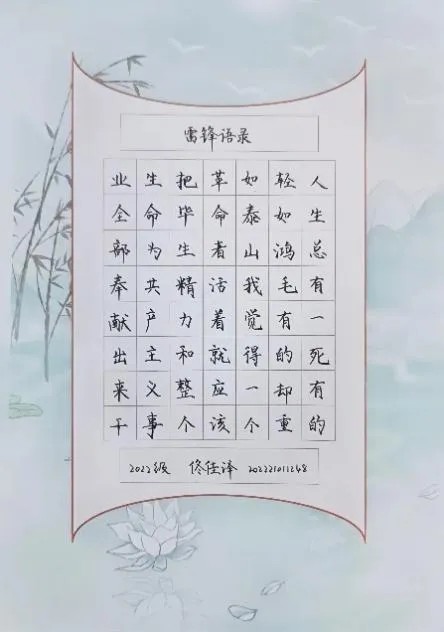 雷锋语录
人生总有一死有的
轻如鸿毛有的却重
如泰山我觉得一个
革命者活着就应该
把毕生精力和整个
生命为共产主义事
业全部奉献出来干
2022级 佟佳泽 202221011248